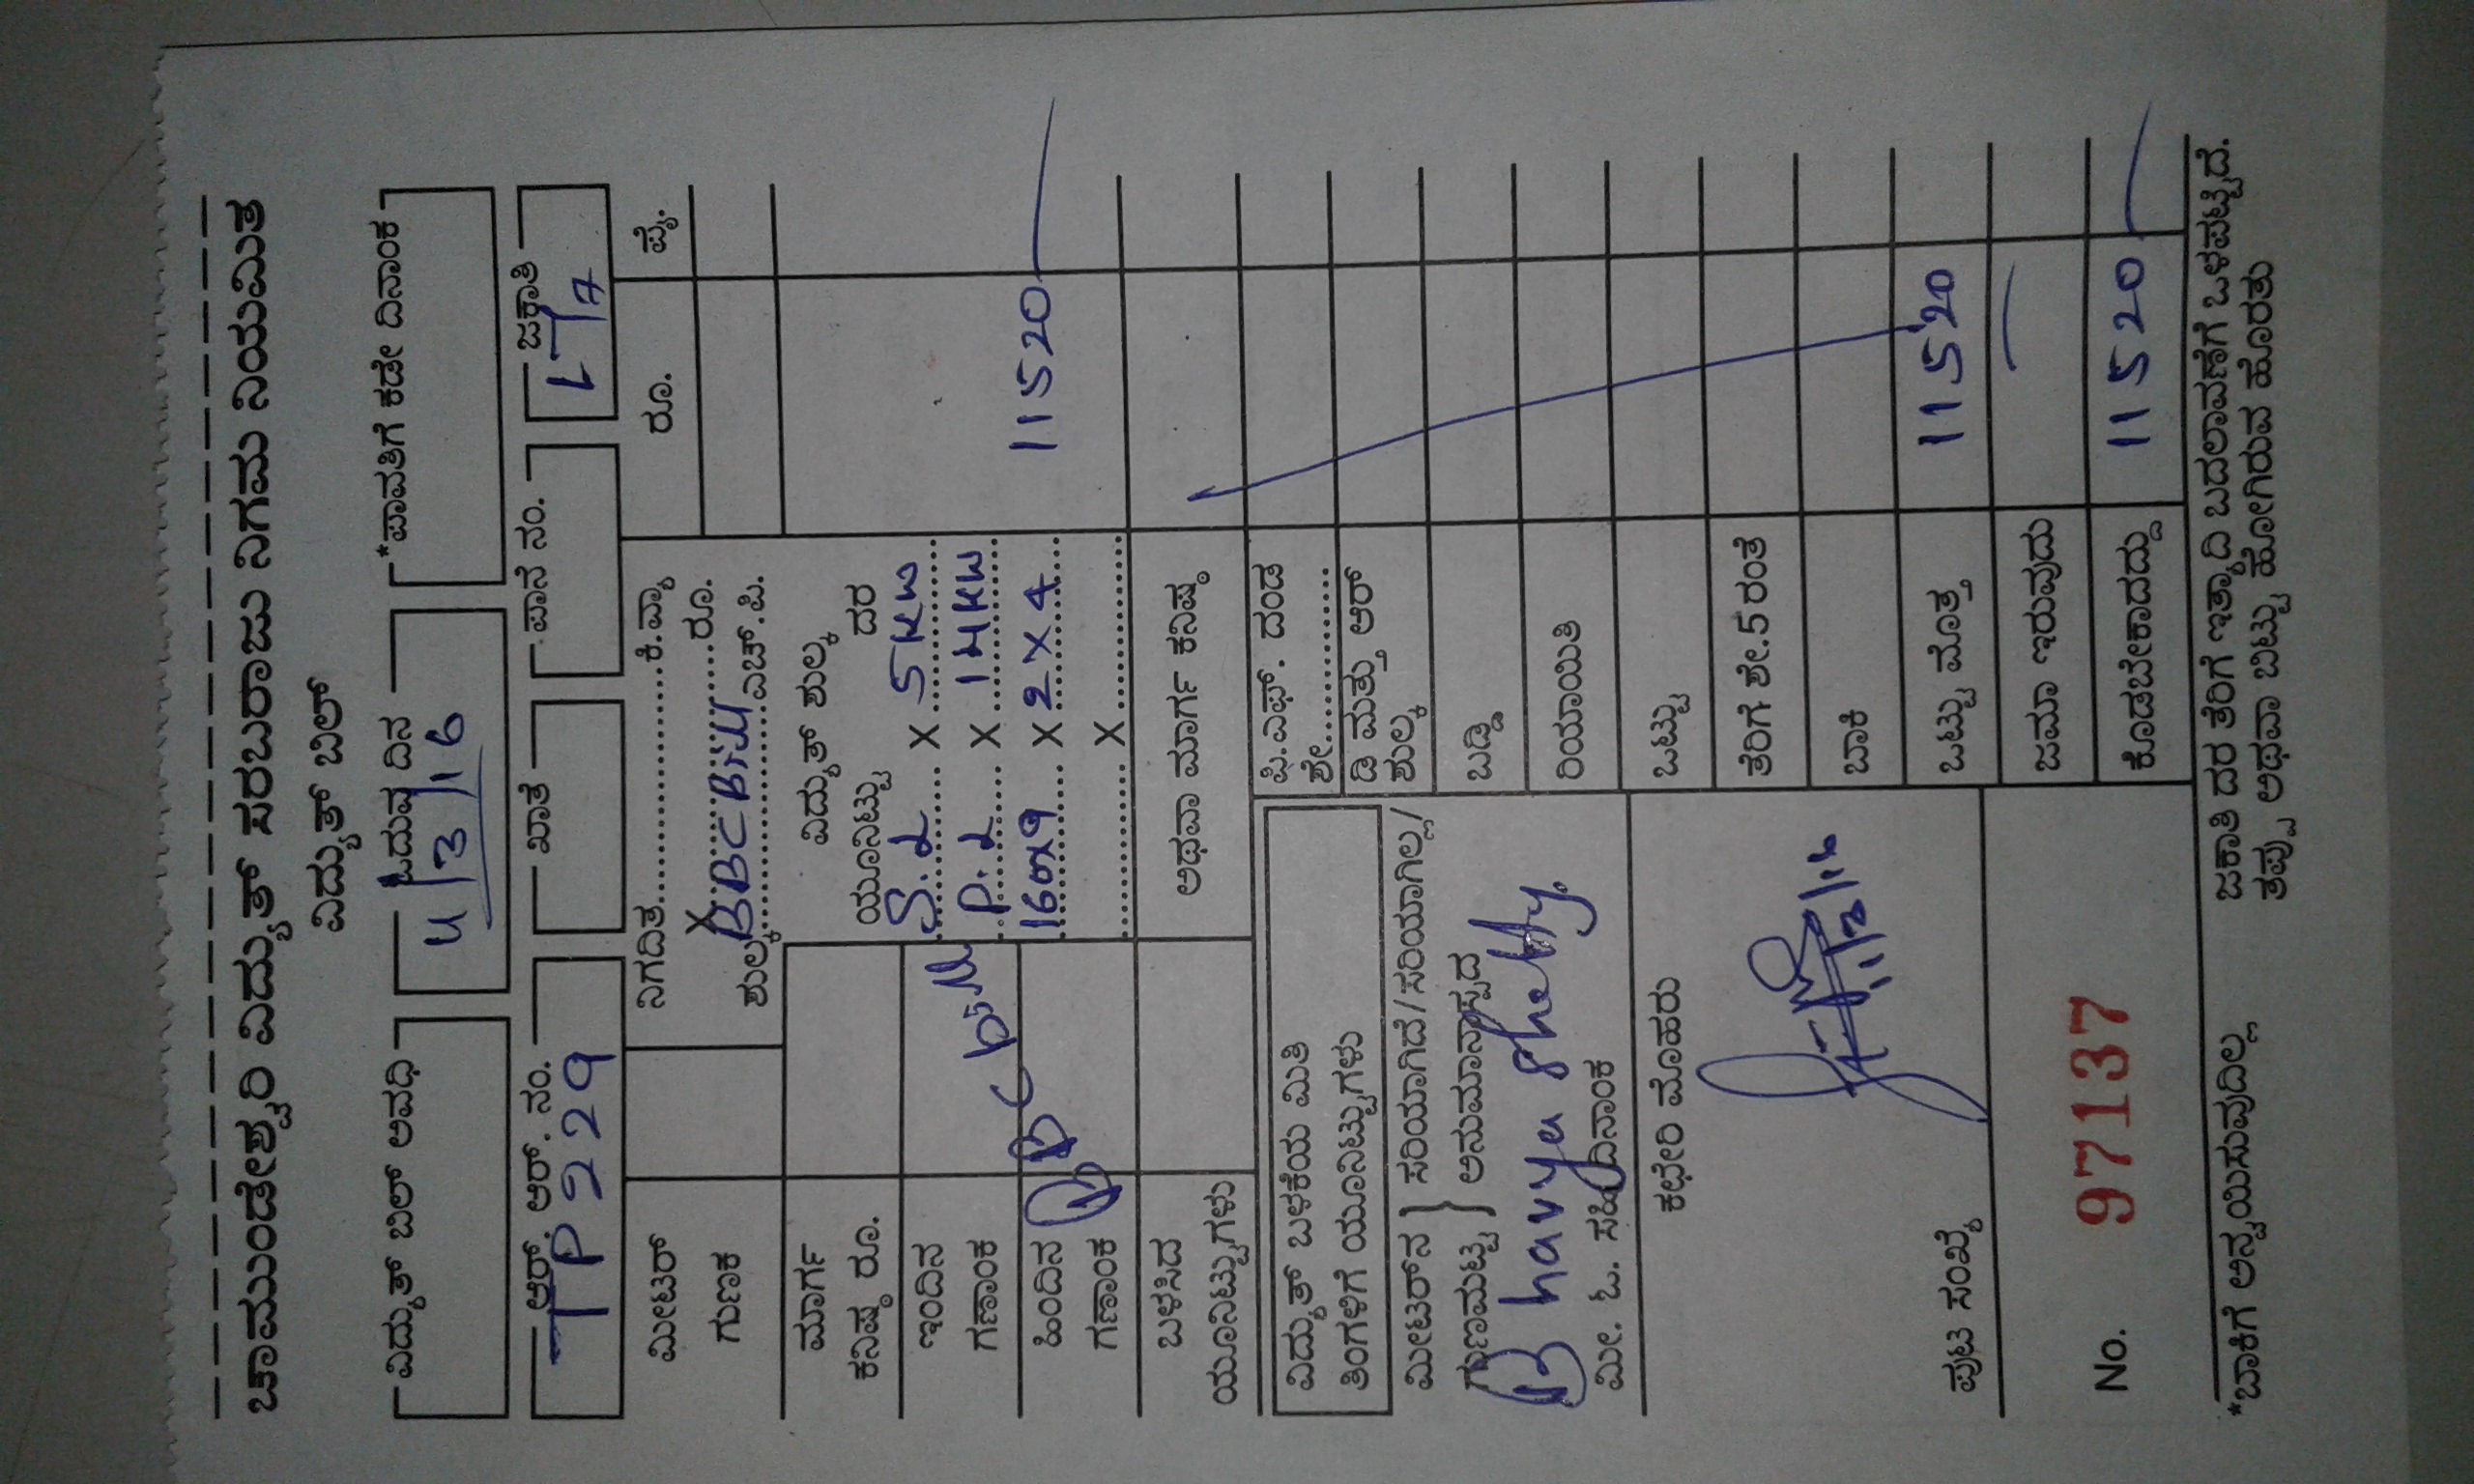 ಚಾಮುಂಡೇಶ್ವರಿ ವಿದ್ಯುತ್ ಸರಬರಾಜು ನಿಗಮ ನಿಯಮಿತ
ವಿದ್ಯುತ್ ಬಿಲ್
ವಿದ್ಯುತ್ ಬಿಲ್ ಅವಧಿ ಓದುವ ದಿನ *ಪಾವತಿಗೆ ಕಡೇ ದಿನಾಂಕ
4/3/16
ಆರ್. ಆರ್. ನಂ. ಖಾತೆ ಪಾನೆ ನಂ. ಜಕಾತಿ
TP 5229 LT/7
ಮೀಟರ್ ನಿಗದಿತ ಕಿ.ವ್ಯಾ ರೂ. ಪೈ.
ಗುಣಕ X ರೂ.
ಶುಲ್ಕ BBC Bill ಎಚ್.ಪಿ.
ಮಾರ್ಗ ವಿದ್ಯುತ್ ಶುಲ್ಕ
ಕನಿಷ್ಠ ರೂ. ಯೂನಿಟ್ಟು ದರ
ಇಂದಿನ S.L X 5KW
ಗಣಾಂಕ P.L X 14KW
ಹಿಂದಿನ BBC bill X 2X4 11520
ಗಣಾಂಕ X
ಬಳಸಿದ ಅಥವಾ ಮಾರ್ಗ ಕನಿಷ್ಠ
ಯೂನಿಟ್ಟುಗಳು
ವಿದ್ಯುತ್ ಬಳಕೆಯ ಮಿತಿ ಪಿ.ಎಫ್. ದಂಡ
ತಿಂಗಳಿಗೆ ಯೂನಿಟ್ಟುಗಳು ಶೇ.
ಡಿ ಮತ್ತು ಆರ್
ಶುಲ್ಕ
ಮೀಟರ್‌ನ } ಸರಿಯಾಗಿದೆ/ಸರಿಯಾಗಿಲ್ಲ/
ಗುಣಮಟ್ಟ } ಅನುಮಾನಾಸ್ಪದ ಬಡ್ಡಿ
Bhavya Shetty
ಮೀ. ಓ. ಸಹಿ ದಿನಾಂಕ ರಿಯಾಯಿತಿ
ಕಛೇರಿ ಮೊಹರು ಒಟ್ಟು
ತೆರಿಗೆ ಶೇ.5 ರಂತೆ
ಬಾಕಿ
ಪುಟ ಸಂಖ್ಯೆ ಒಟ್ಟು ಮೊತ್ತ 11520
ಜಮಾ ಇರುವುದು
No. 97137 ಕೊಡಬೇಕಾದದ್ದು 11520
*ಬಾಕಿಗೆ ಅನ್ವಯಿಸುವುದಿಲ್ಲ ಜಕಾತಿ ದರ ತೆರಿಗೆ ಇತ್ಯಾದಿ ಬದಲಾವಣೆಗೆ ಒಳಪಟ್ಟಿದೆ.
ತಪ್ಪು ಅಥವಾ ಬಿಟ್ಟು ಹೋಗಿರುವ ಹೊರತು